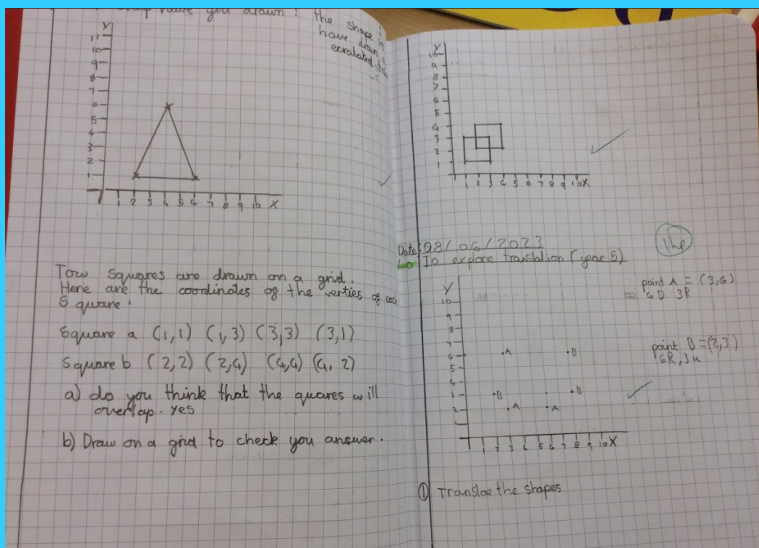 have you drawn? the shape is
have drawn
Y
11
10
9
8
7
6
5
4
3
2
1
1 2 3 4 5 6 7 8 9 10 X
Tow squares are drawn on a grid.
Here are the coordinates of the verties of
Square:
Square a (1,1) (1,3) (3,3) (3,1)
Square b (2,2) (2,4) (4,4) (4,2)
a) do you think that the quares will
overlap. yes
b) Draw on a grid to check you answer.
Y
10
9
8
7
6
5
4
3
2
1
1 2 3 4 5 6 7 8 9 10 X
Date: 08/06/2023
To explore translation (year 5)
Y
10
9
8
7
6
5
4
3
2
1
A B
B B
A A
1 2 3 4 5 6 7 8 9 10 X
point A = (3,6)
4D 3R
point B = (2,3)
6R, 3u
① Translae the shapes